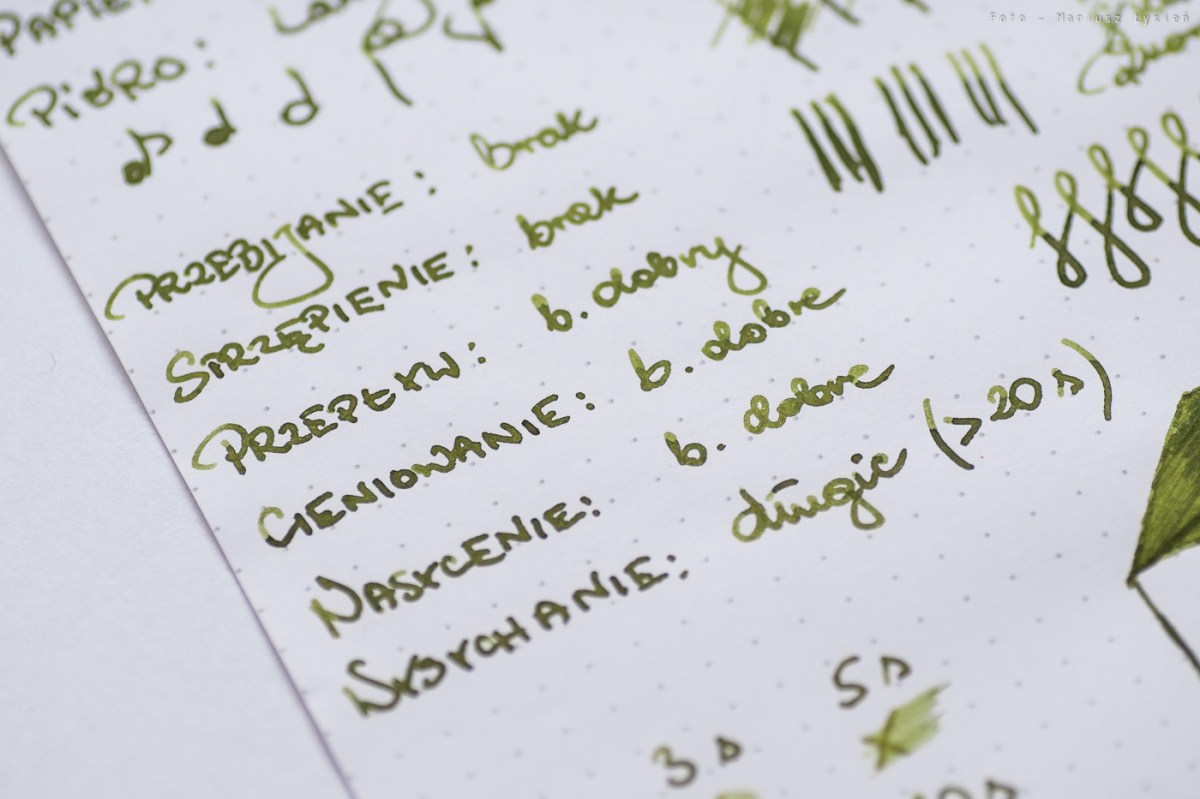 Foto - Mariusz Łysień
PIÓRO:
PRZEBIJANIE: brak
STRZĘPIENIE: brak
PRZEPŁYW: b. dobry
CIENIOWANIE: b. dobre
NASYCENIE: b. dobre
WYSYCHANIE: długie (>20 s)
5 s
3 s